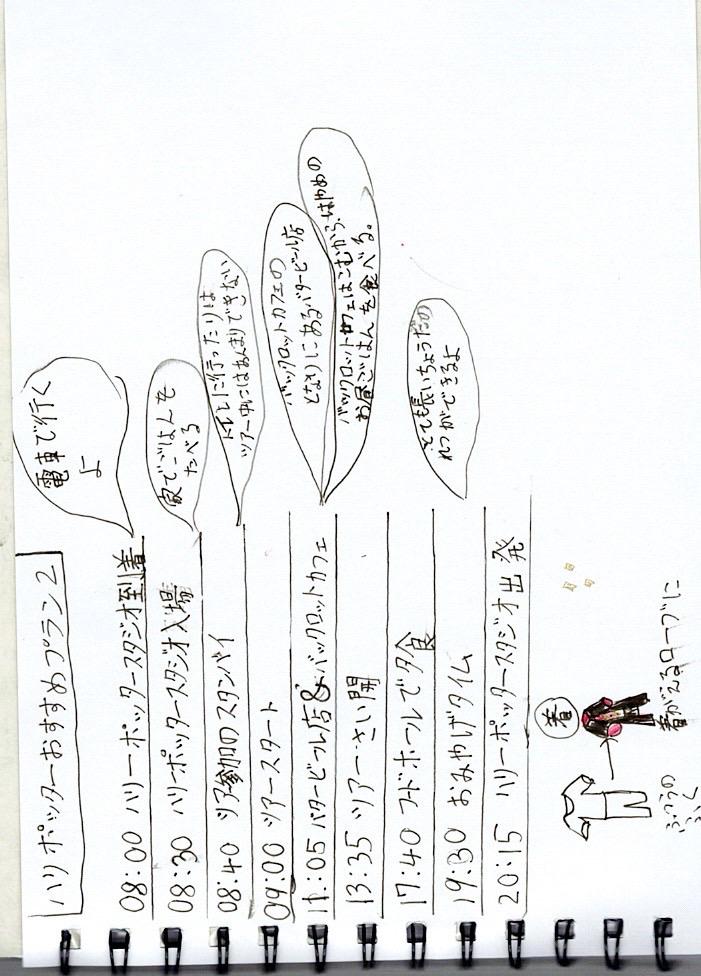 ハリーポッターおすすめプラン2
08:00 ハリーポッタースタジオ到着
電車で行く
よ
08:30 ハリーポッタースタジオ入場
家でごはんを
たべる
08:40 ツアー参加のスタンバイ
トイレに行ったりは
ツアー中にはあんまりできない
09:00 ツアースタート
11:05 バタービール店&バックロットカフェ
バックロットカフェの
となりにあるバタービール店
バックロットカフェはこむから、はやめの
お昼ごはんを食べる。
13:35 ツアーさい開
17:40 フードホールで夕食
19:30 おみやげタイム
とても長いちょうだの
れつができるよ
20:15 ハリーポッタースタジオ出発
着
ふつうの
ふく
着がえるローブに